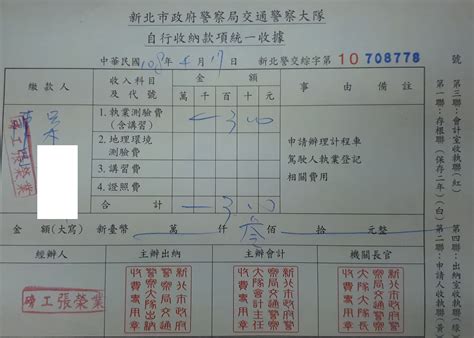 新北市政府警察局交通警察大隊
自行收納款項統一收據
中華民國108年4月17日 新北警交綜字第10708778號
繳款人 收入科目及代號 金額 萬千百十元 事由備註
1.執業測驗費(含講習) 300
2.地理環境測驗費
3.講習費
4.證照費
合計 300
申請辦理計程車
駕駛人執業登記
相關費用
金額(大寫) 新臺幣 萬 仟 叁 佰 拾 元整
經辦人 主辦出納 主辦會計 機關長官
技工張榮業
新北市政府警察局交通警察大隊出納收費專用章
新北市政府警察局交通警察大隊會計主任收費專用章
新北市政府警察局交通警察大隊大隊長收費專用章
第一聯:存根聯(保存二年)(白)
第二聯:申請人收執聯(黃)
第三聯:會計室收執聯(紅)
第四聯:出納室收執聯(綠)